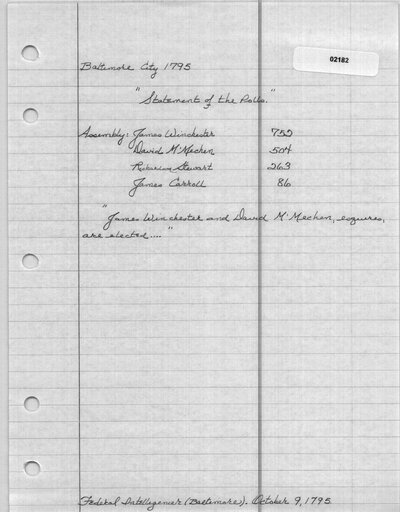 Baltimore City 1795
02182
"Statement of the Polls."
Assembly: James Winchester 752
David McMechen 504
Richardson Stewart 263
James Carroll 86
"James Winchester and David McMechen, esquires,
are elected...."
Federal Intelligencer (Baltimore). October 9, 1795.